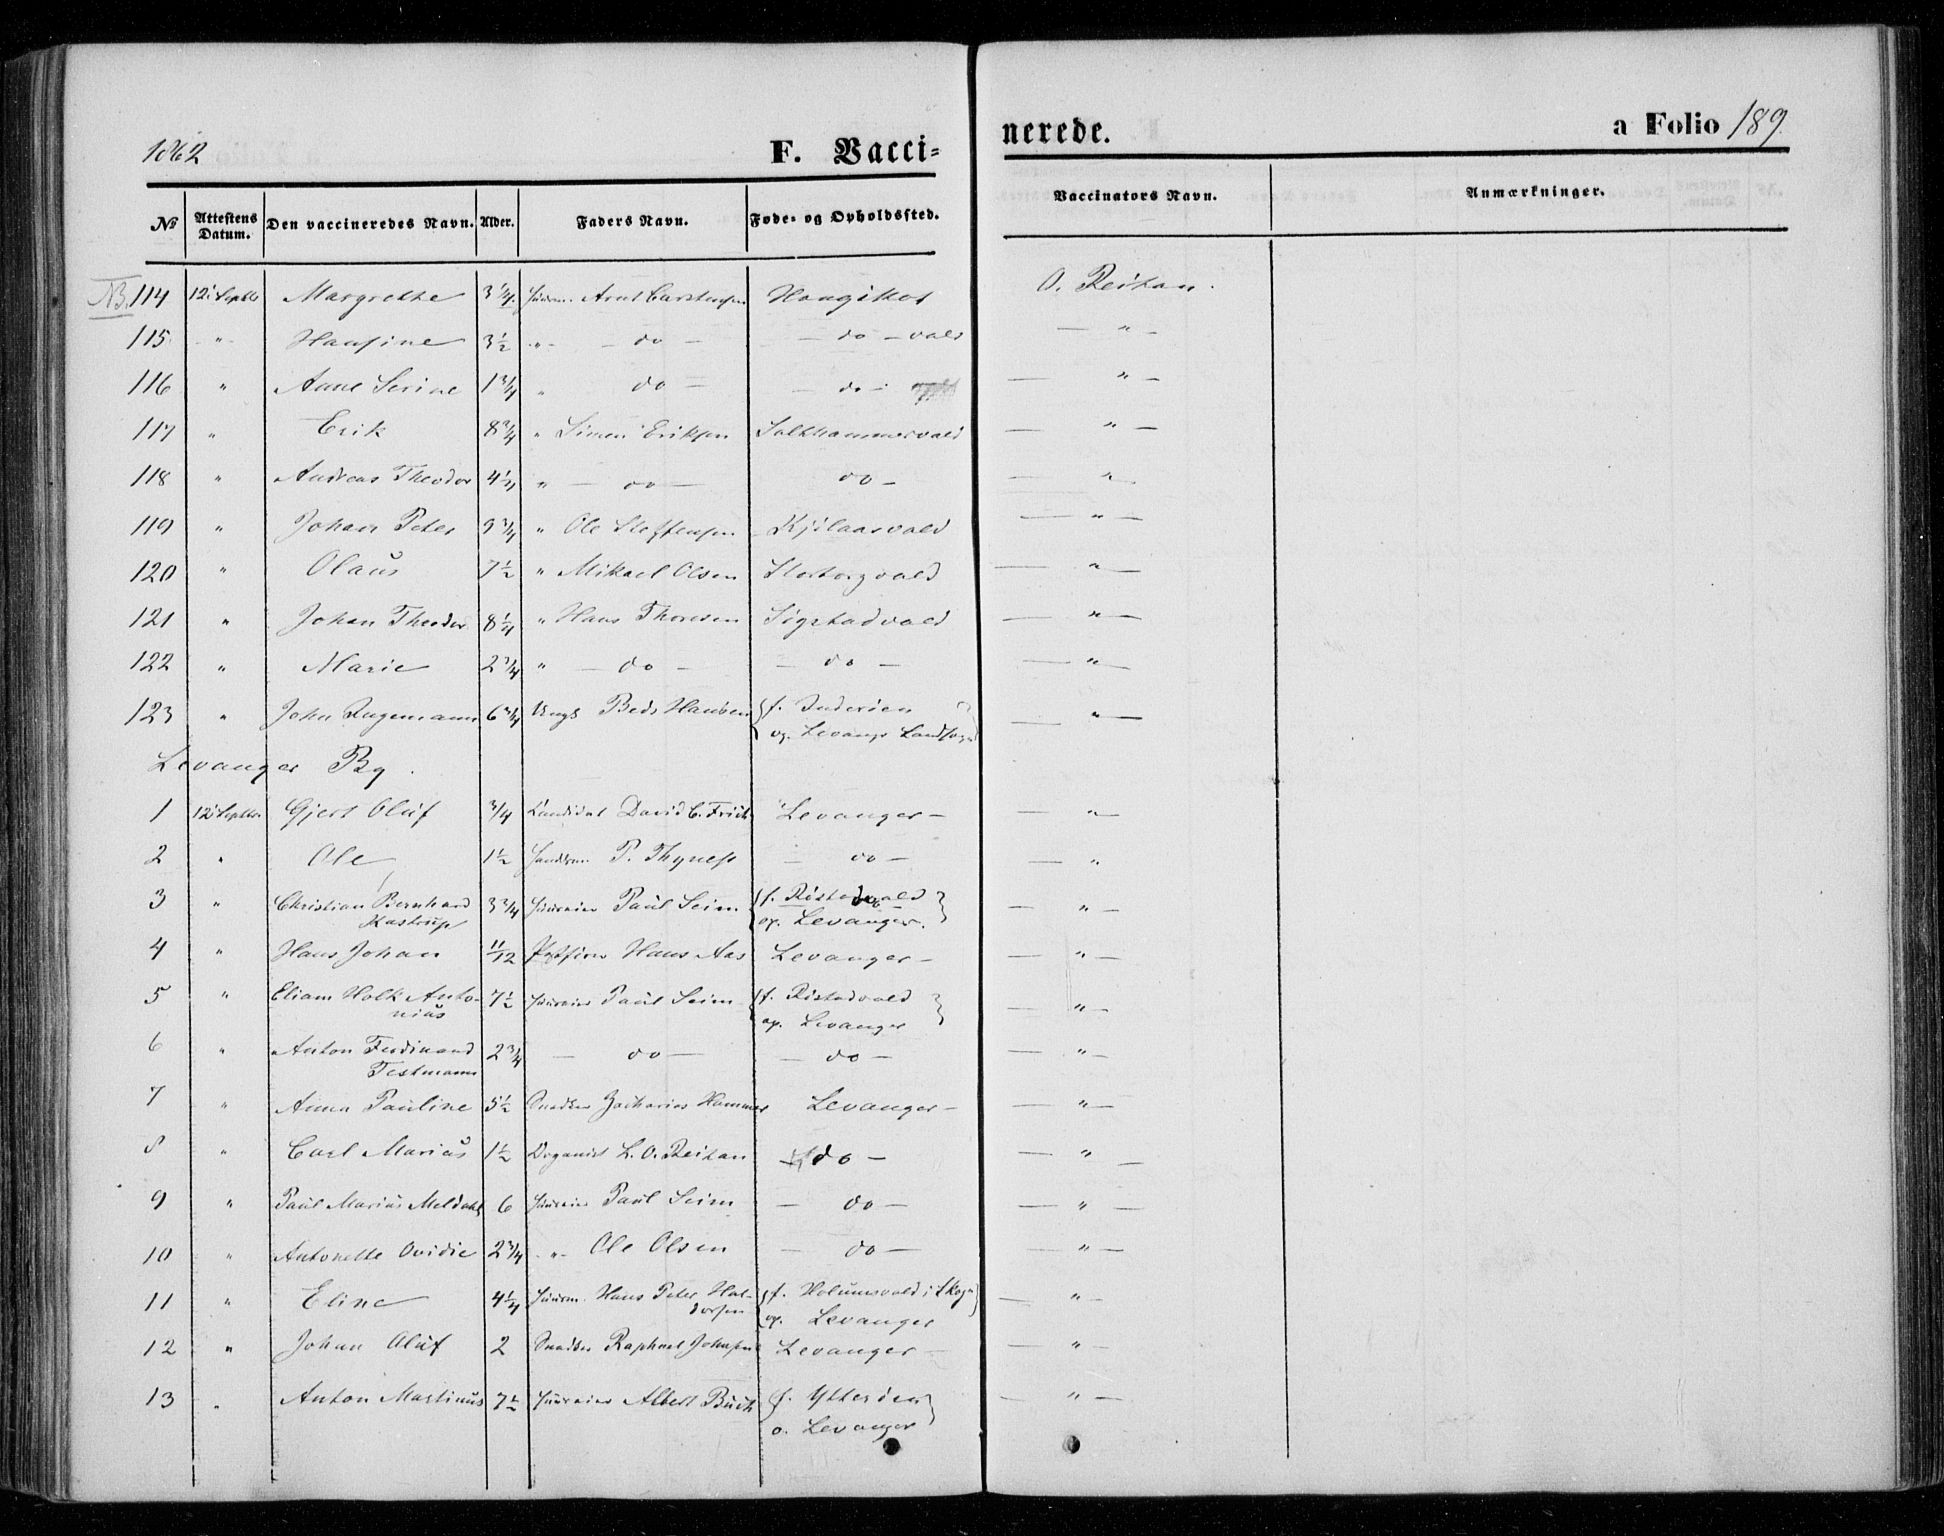 1862
F. Vacci-
nerede.
a Folio 189.
№ Attestens Datum. Den vaccineredes Navn. Alder. Faders Navn. Føde- og Opholdssted. Vaccinators Navn. Anmærkninger.
NB. 114 12' Septbr Margrethe 3 1/4 Huusm. Arnt Carstensen O. Reitan.
115 " Hansine 3 1/2 " - do - - do - vald — " —
116 " Anne Serine 1 3/4 " do - - do - — " —
117 " Erik 8 3/4 " Simen Eriksen Salthammervald — " —
118 " Andreas Theodor 4 1/4 " - do - do - — " —
119 " Johan Peter 9 3/4 " Ole Steffensen — " —
120 " Olaus 7 1/2 " Mikael Olsen — " —
121 " Johan Theodor 8 1/4 " Hans Thoresen Sigstadvald — " —
122 " Marie 2 3/4 " - do - - do - — " —
123 " John Ingemann 6 3/4 Ungk. Hansen f. Inderøen — " —
og. Levangr Landsogn
Levanger By.
1 12' Septbr. Gjert Oluf 3/4 Kandidat David C. Levanger - — " —
2 " Ole 1 1/2 Handlsm. P. Thyness - do - — " —
3 " Christian Bernhard 3 3/4 Huuseier Paul Seim f. Ristadvald — " —
Kastrup op. Levanger.
4 " Hans Johan 11/12 Hans Aas Levanger - — " —
5 " Eliam Holk Anto- 7 1/2 Huuseier Paul Seim f. Ristadvald — " —
nius op. Levanger
6 " Anton Ferdinand 2 3/4 - do - - do - — " —
Testmann
7 " Anna Pauline 5 1/2 Snedker Zacharias Hammer Levanger - — " —
8 " Carl Marius 1 1/2 Organist L. O. Reitan do - — " —
9 " Paul Marius Meldahl 6 Huuseier Paul Seim - do - — " —
10 " Antonette Ovidie 2 3/4 " Ole Olsen - do - — " —
11 " Eline 4 1/4 Huusm. Hans Peter Hal- f. Holumsvald i Skogn — " —
dorsen op. Levanger
12 " Johan Oluf 2 Snedker Raphael Johnsen Levanger - — " —
13 " Anton Martinus 7 1/2 Huuseier Albert Buch f. Ytterøen — " —
o. Levanger